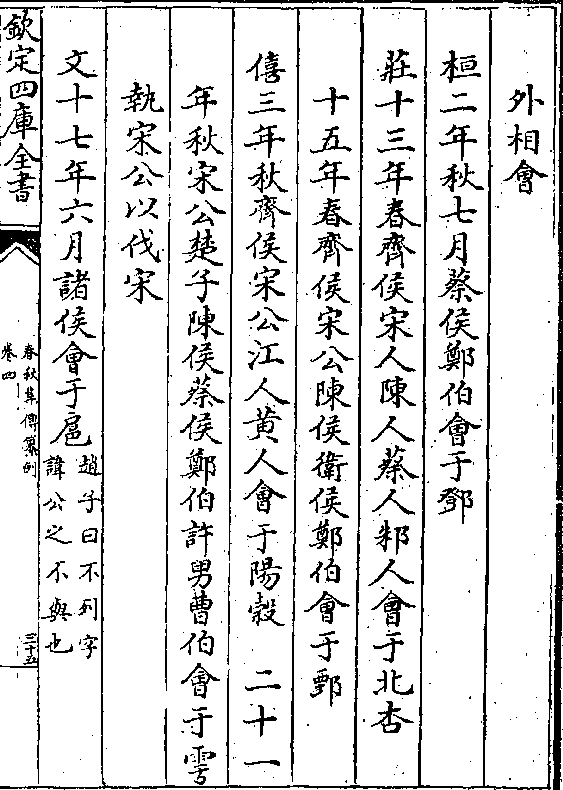 外相會
桓二年秋七月蔡侯鄭伯會于鄧
莊十三年春齊侯宋人陳人蔡人邾人會于北杏
十五年春齊侯宋公陳侯衛侯鄭伯會于鄄
僖三年秋齊侯宋公江人黃人會于陽穀　二十一
年秋宋公楚子陳侯蔡侯鄭伯許男曹伯會于雩
執宋公以伐宋
文十七年六月諸侯會于扈趙子曰不列字
諱公之不與也
欽定四庫全書
春秋集傳纂例
卷四
三十五